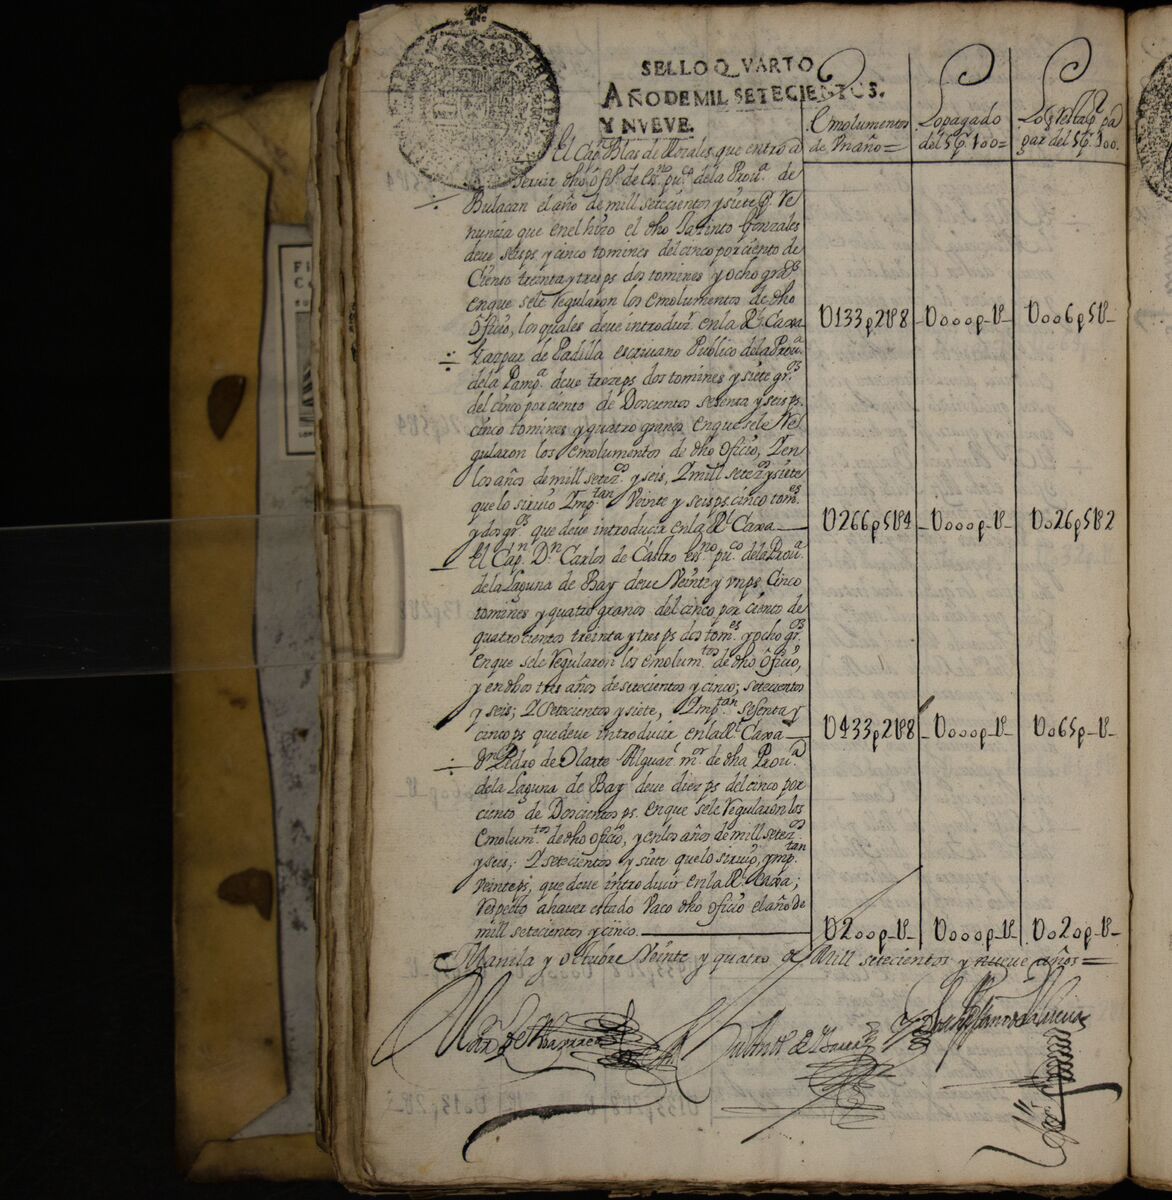 SELLO QVARTO
AÑO DE MIL SETECIENTOS.
Y NVEVE.
Emolumentos
de Vn año=
Lo pagado
del 5 p. 100=
Lo q resta pa
gar del 5 p. 100.
El Capn. Blas de Rosales que entró a
seruir dho ofiº. de esno. puco. de la Prouª. de
Bulacan el año de mill setecientos y siete p. Re
nuncia que en el hizo el dho Jazinto Gonzales
deue seis ps. y cinco tomines del cinco por ciento de
Ciento treinta y tres ps dos tomines y ocho gros
en que se le regularon los emolumentos de dho
oficio, los quales deue introduzir en la Rl. Caxa
V133p2t8
V000p-t-
V006p5t-
Gaspar de Padilla escriuano Publico de la Prouª.
de la Pampª. deue treze ps dos tomines y siete grs.
del cinco por ciento de Doscientos sesenta y seis ps.
cinco tomines y quatro granos en que se le Re
gularon los emolumentos de dho oficio, Y en
los años de mill setezos. y seis, Y mill setezos y siete
que lo siruio Ymptan Veinte y seis ps. cinco tomes
y dos gros. que deue introducir en la Rl. Caxa
V266p5t4
V000p-t-
V026p5t2
El Capn. Dn. Carlos de Castro esno. puco. de la Prouª.
de la Laguna de Bay deue Veinte y vn ps. Cinco
tomines y quatro granos del cinco por ciento de
quatrocientos treinta y tres ps dos tomes. y ocho gros.
en que se le regularon los emolumtos. de dho oficio,
y en dhos tres años de setecientos y cinco; setecientos
y seis; Y setecientos y siete, Ymptan. sesenta y
cinco ps que deue introducir en la Rl. Caxa
V433p2t8
V000p-t-
V065p-t-
Dn. Pedro de Olarte Alguazl. mor. de dha Prouª.
de la Laguna de Bay deue diez ps del cinco por
ciento de Doscientos ps. en que se le Regularon los
Emolumtos. de dho oficio, y en los años de mill setezos.
y seis; Y setecientos y siete que lo siruio, ymptan.
veinte ps, que deue introducir en la Rl. Caxa;
respecto a hauer estado Vaco dho oficio el año de
mill setecientos y cinco.
V200p-t-
V000p-t-
V020p-t-
Manila y octubre Veinte y quatro de Mill setecientos y nueue años=